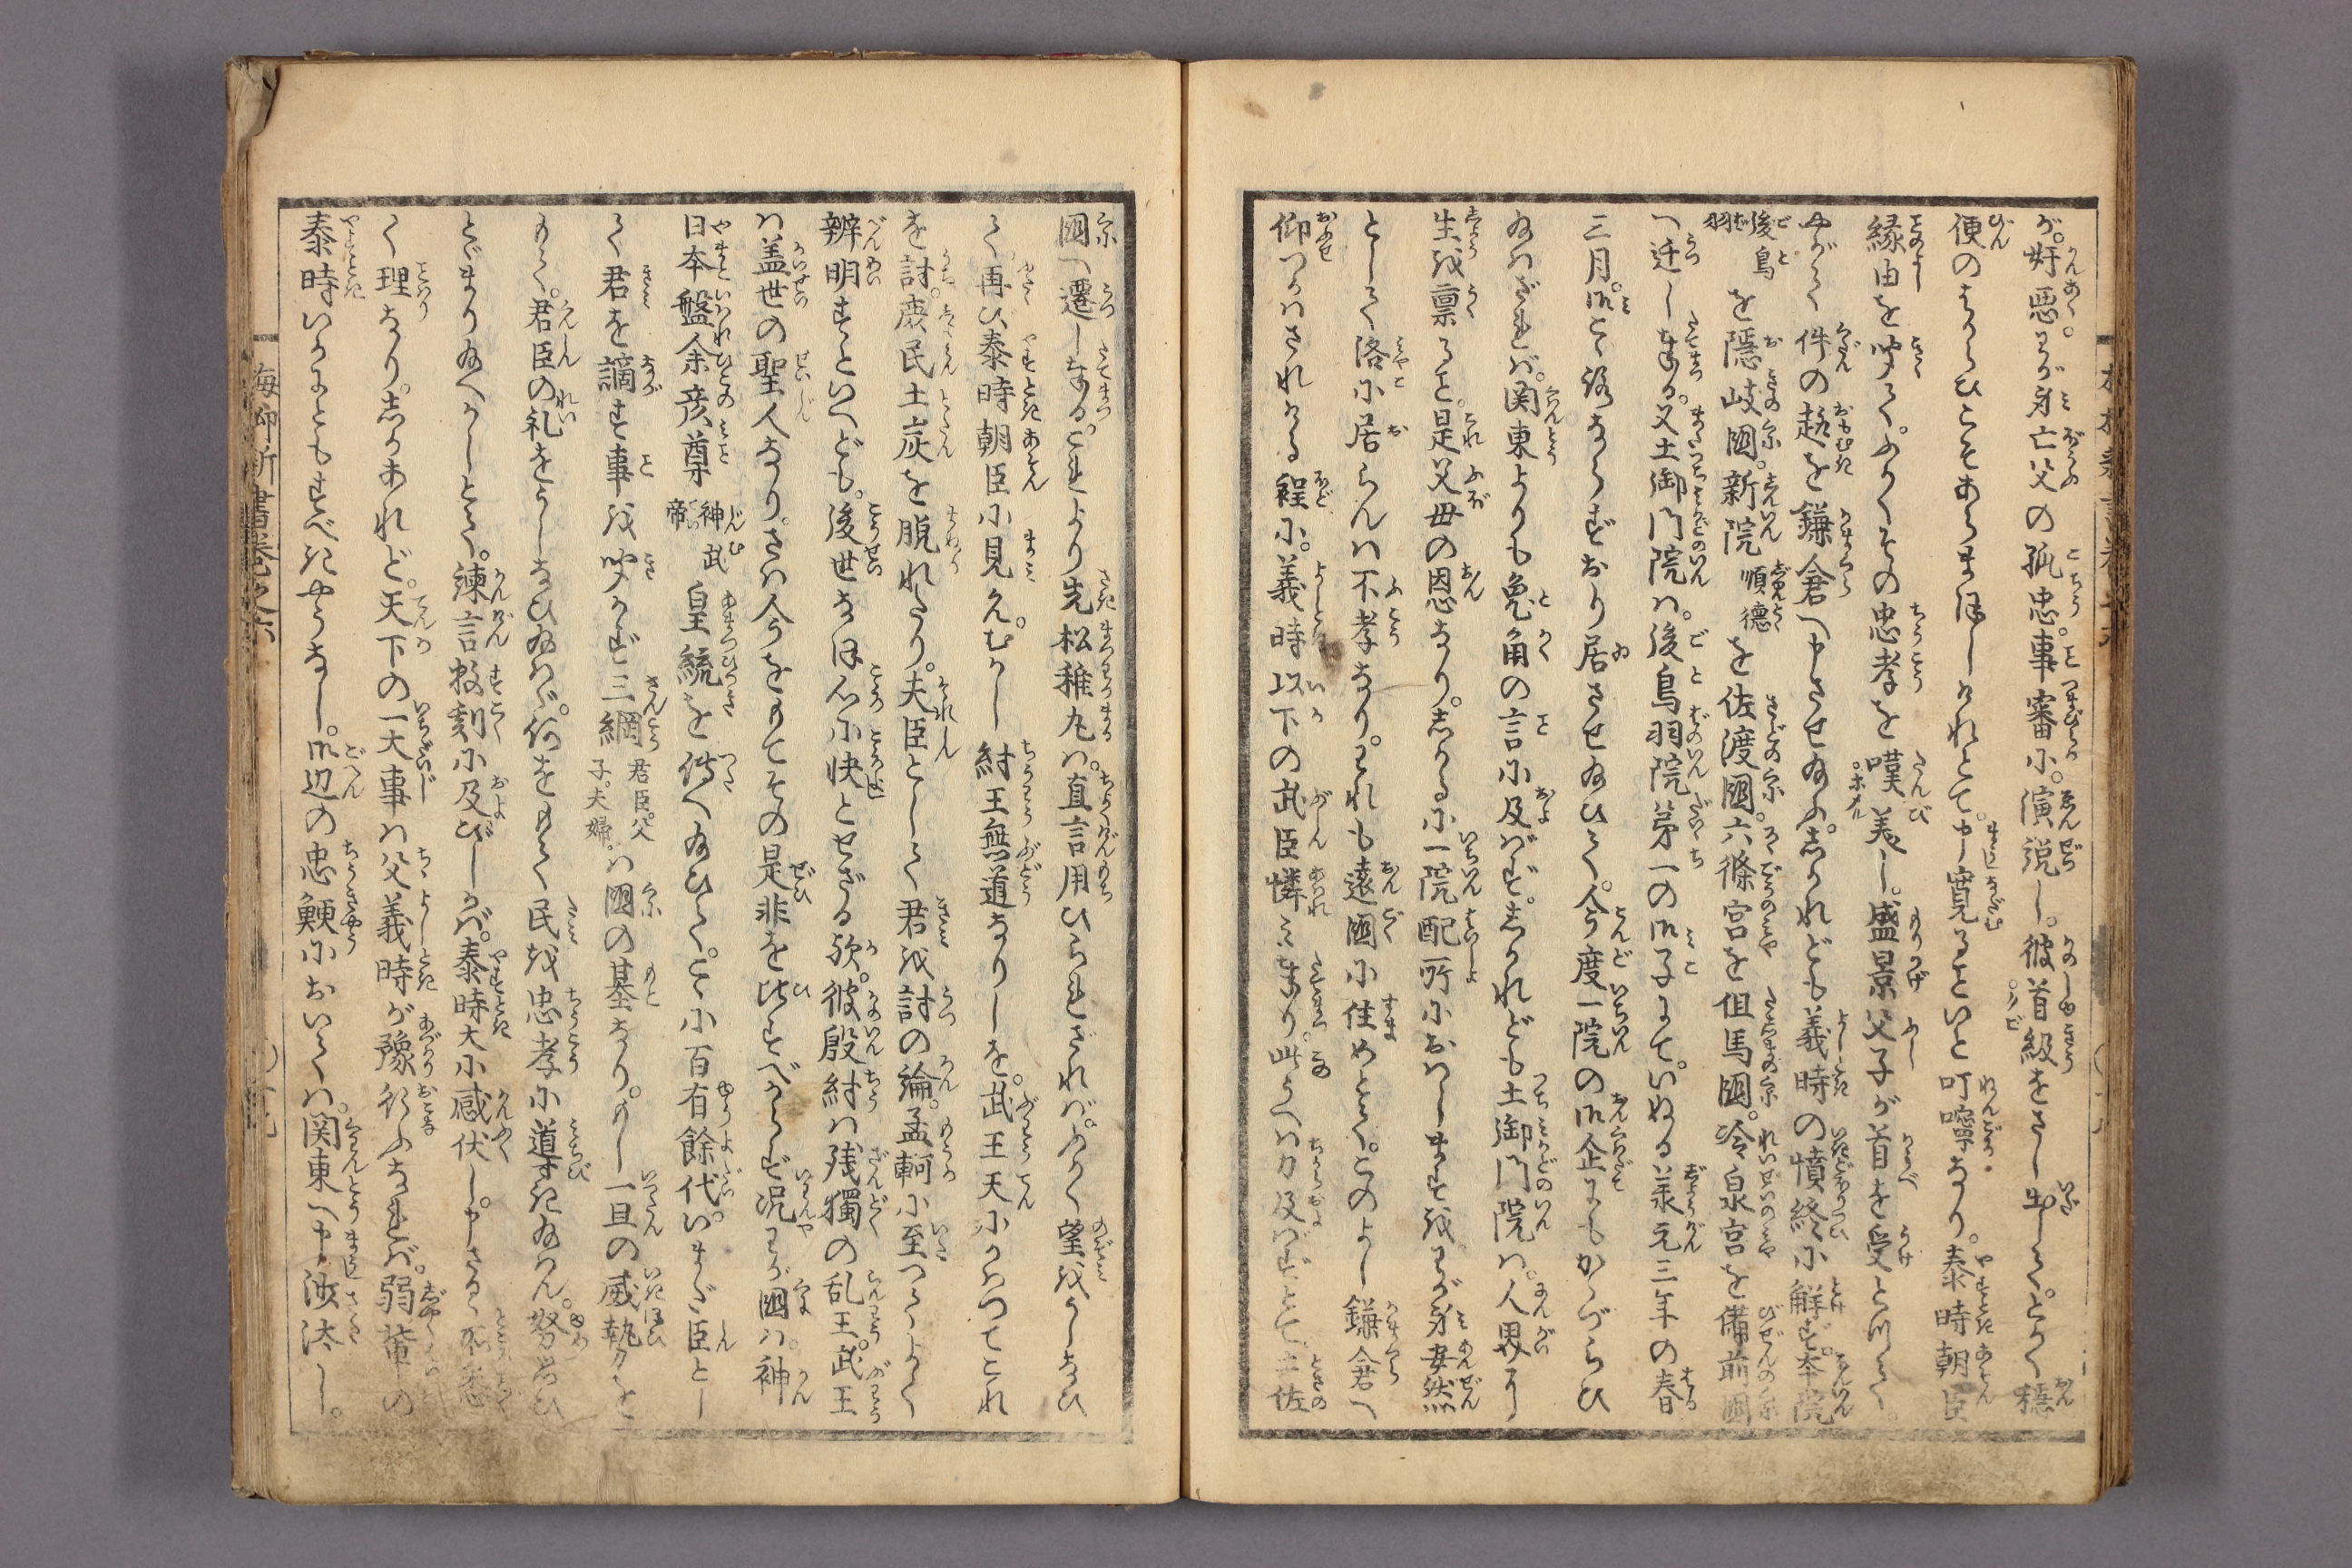 が。奸悪わが身亡父の孤忠。事審に。演説し。彼首級をさし出して。とかく穏
便のはからひこそあらまほしけれとて。申寛ることいと叮嚀なり。泰時朝臣
縁由を聞て。ふかくその忠孝を嘆美し。盛景父子が首を受とりて。
やがて件の趣を鎌倉へ申させ給ふ。しかれども義時の憤終に解ず。本院
後鳥羽を隠岐国。新院順徳を佐渡国。六條宮を但馬国。冷泉宮を備前国
へ迁し奉る。又土御門院は。後鳥羽院第一の御子にて。いぬる羕元三年の春
三月。御こゝろならずおり居させ給ひて。今度一院の御企にもかゝづらひ
給はざれば。関東よりも兔角の言に及ばず。しかれども土御門院は。人界に
生を禀ること。是父母の恩なり。しかるに一院配所におはしますを。わが身安然
として洛に居らんは不孝なり。われも遠国に住めとて。このよし鎌倉へ
仰つかはされける程に。義時以下の武臣憐み奉り。此うへは力及ばずとて。土佐
国へ遷し奉る。これより先松稚丸は。直言用ひられざれば。ふかく望をうしなひ
て。再び泰時朝臣に見えて。むかし紂王無道なりしを。武王天にかはつてこれ
を討。庶民土炭を脱れたり。夫臣として君を討の論。孟軻に至つてよく
辨明すといへども。後世なほ心に快とせざる欤。彼殷紂は残獨の乱王。武王
は盖世の聖人なり。さは今をもてその是非を比すべからず。况わが国は。神
日本盤余彦尊神武帝皇統を傳へ給ひて。こゝに百有餘代。いまだ臣とし
て君を謫す事を聞かず。三綱君臣。父子。夫婦。は国の基なり。もし一旦の威勢を
もて。君臣の礼をうしなひ給はゞ。何をもて民を忠孝に導き給はん。努思ひ
とゞまり給へかしとて。諫言数刻に及びしかば。泰時大に感伏し。申さるゝ所悉
く理なり。しかあれど。天下の一大事は父義時が豫行ふなれば。弱輩の
泰時いかにともすべきやうなし。御辺の忠鯁においては。関東へ申沙汰し。